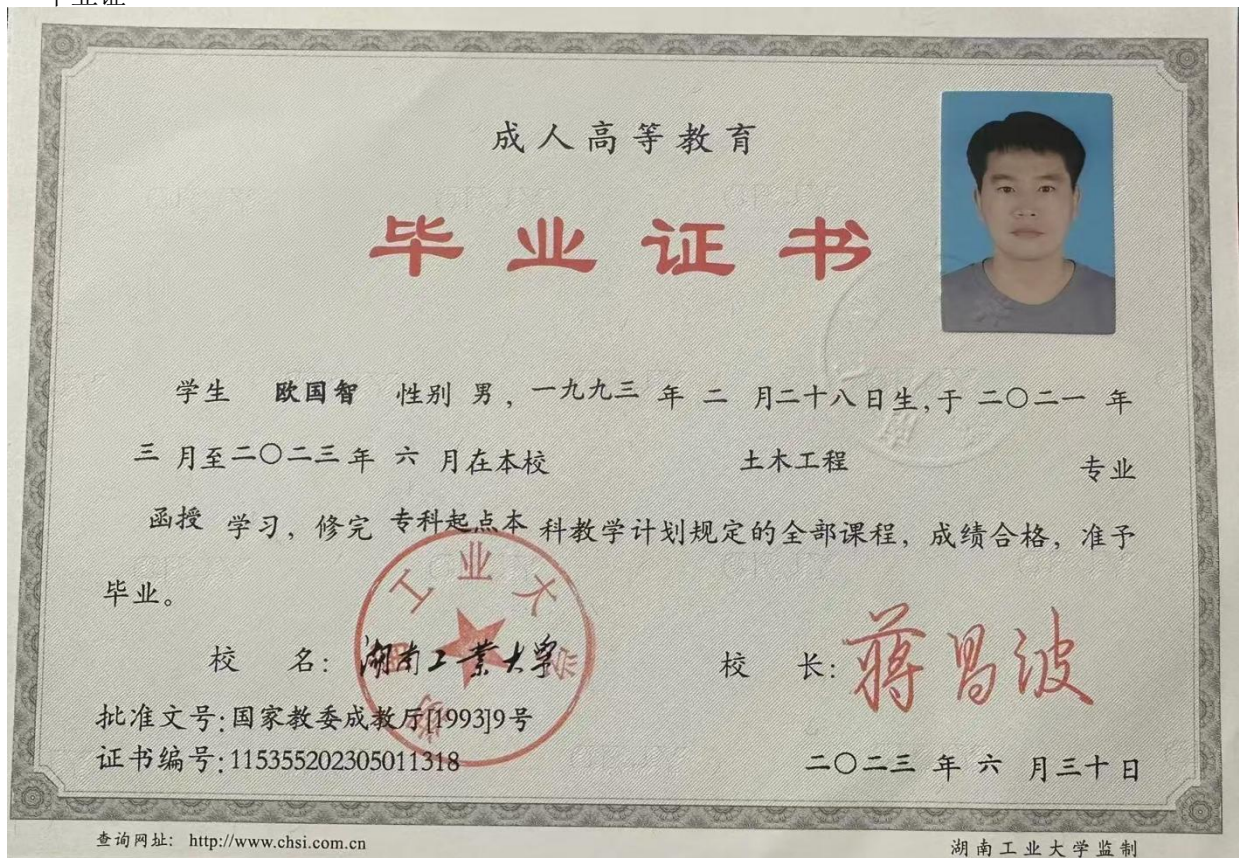 毕业证
成人高等教育
毕业证书
学生 欧国智 性别 男，一九九三 年 二 月二十八日生，于 二〇二一 年
三 月至二〇二三年 六 月在本校 土木工程 专业
函授 学习，修完 专科起点本 科教学计划规定的全部课程，成绩合格，准予
毕业。
校 名：湖南工業大学
校 长：蒋昌波
批准文号：国家教委成教厅[1993]9号
证书编号：115355202305011318
二〇二三 年 六 月三十日
查询网址： http://www.chsi.com.cn
湖南工业大学监制